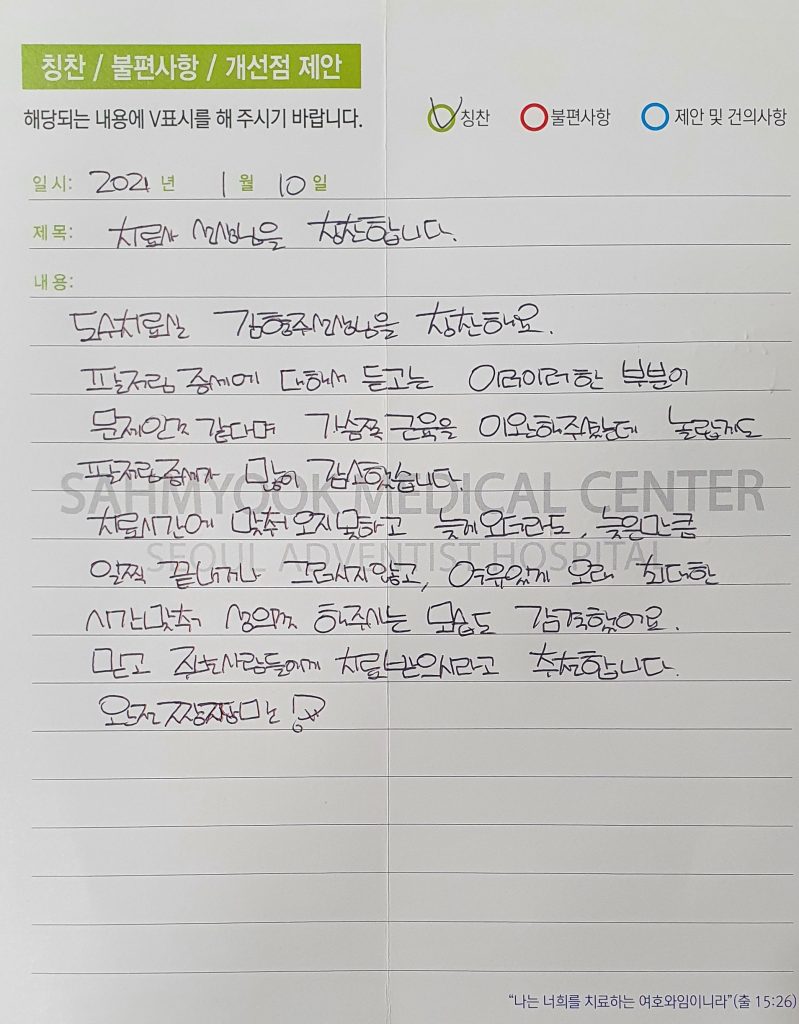 칭찬 / 불편사항 / 개선점 제안
해당되는 내용에 V표시를 해 주시기 바랍니다. V 칭찬 불편사항 제안 및 건의사항
일시: 2021 년 1 월 10 일
제목: 치료사 선생님을 칭찬합니다.
내용:
도수치료실 김형주선생님을 칭찬해요.
팔저림 증세에 대해서 듣고는 이러이러한 부분이
문제인것 같다며 가슴쪽 근육을 이완해주셨는데 놀랍게도
팔저림증세가 많이 감소했습니다.
SAHMYOOK MEDICAL CENTER
치료시간에 맞춰 오지못하고 늦게오더라도, 늦은만큼
SEOUL ADVENTIST HOSPITAL
일찍 끝내거나 그러시지않고, 여유있게 오래 최대한
시간맞춰 성의껏 해주시는 모습도 감격했어요.
믿고 주변사람들에게 치료받으시라고 추천합니다.
완전 짱짱맨
“나는 너희를 치료하는 여호와임이니라”(출 15:26)